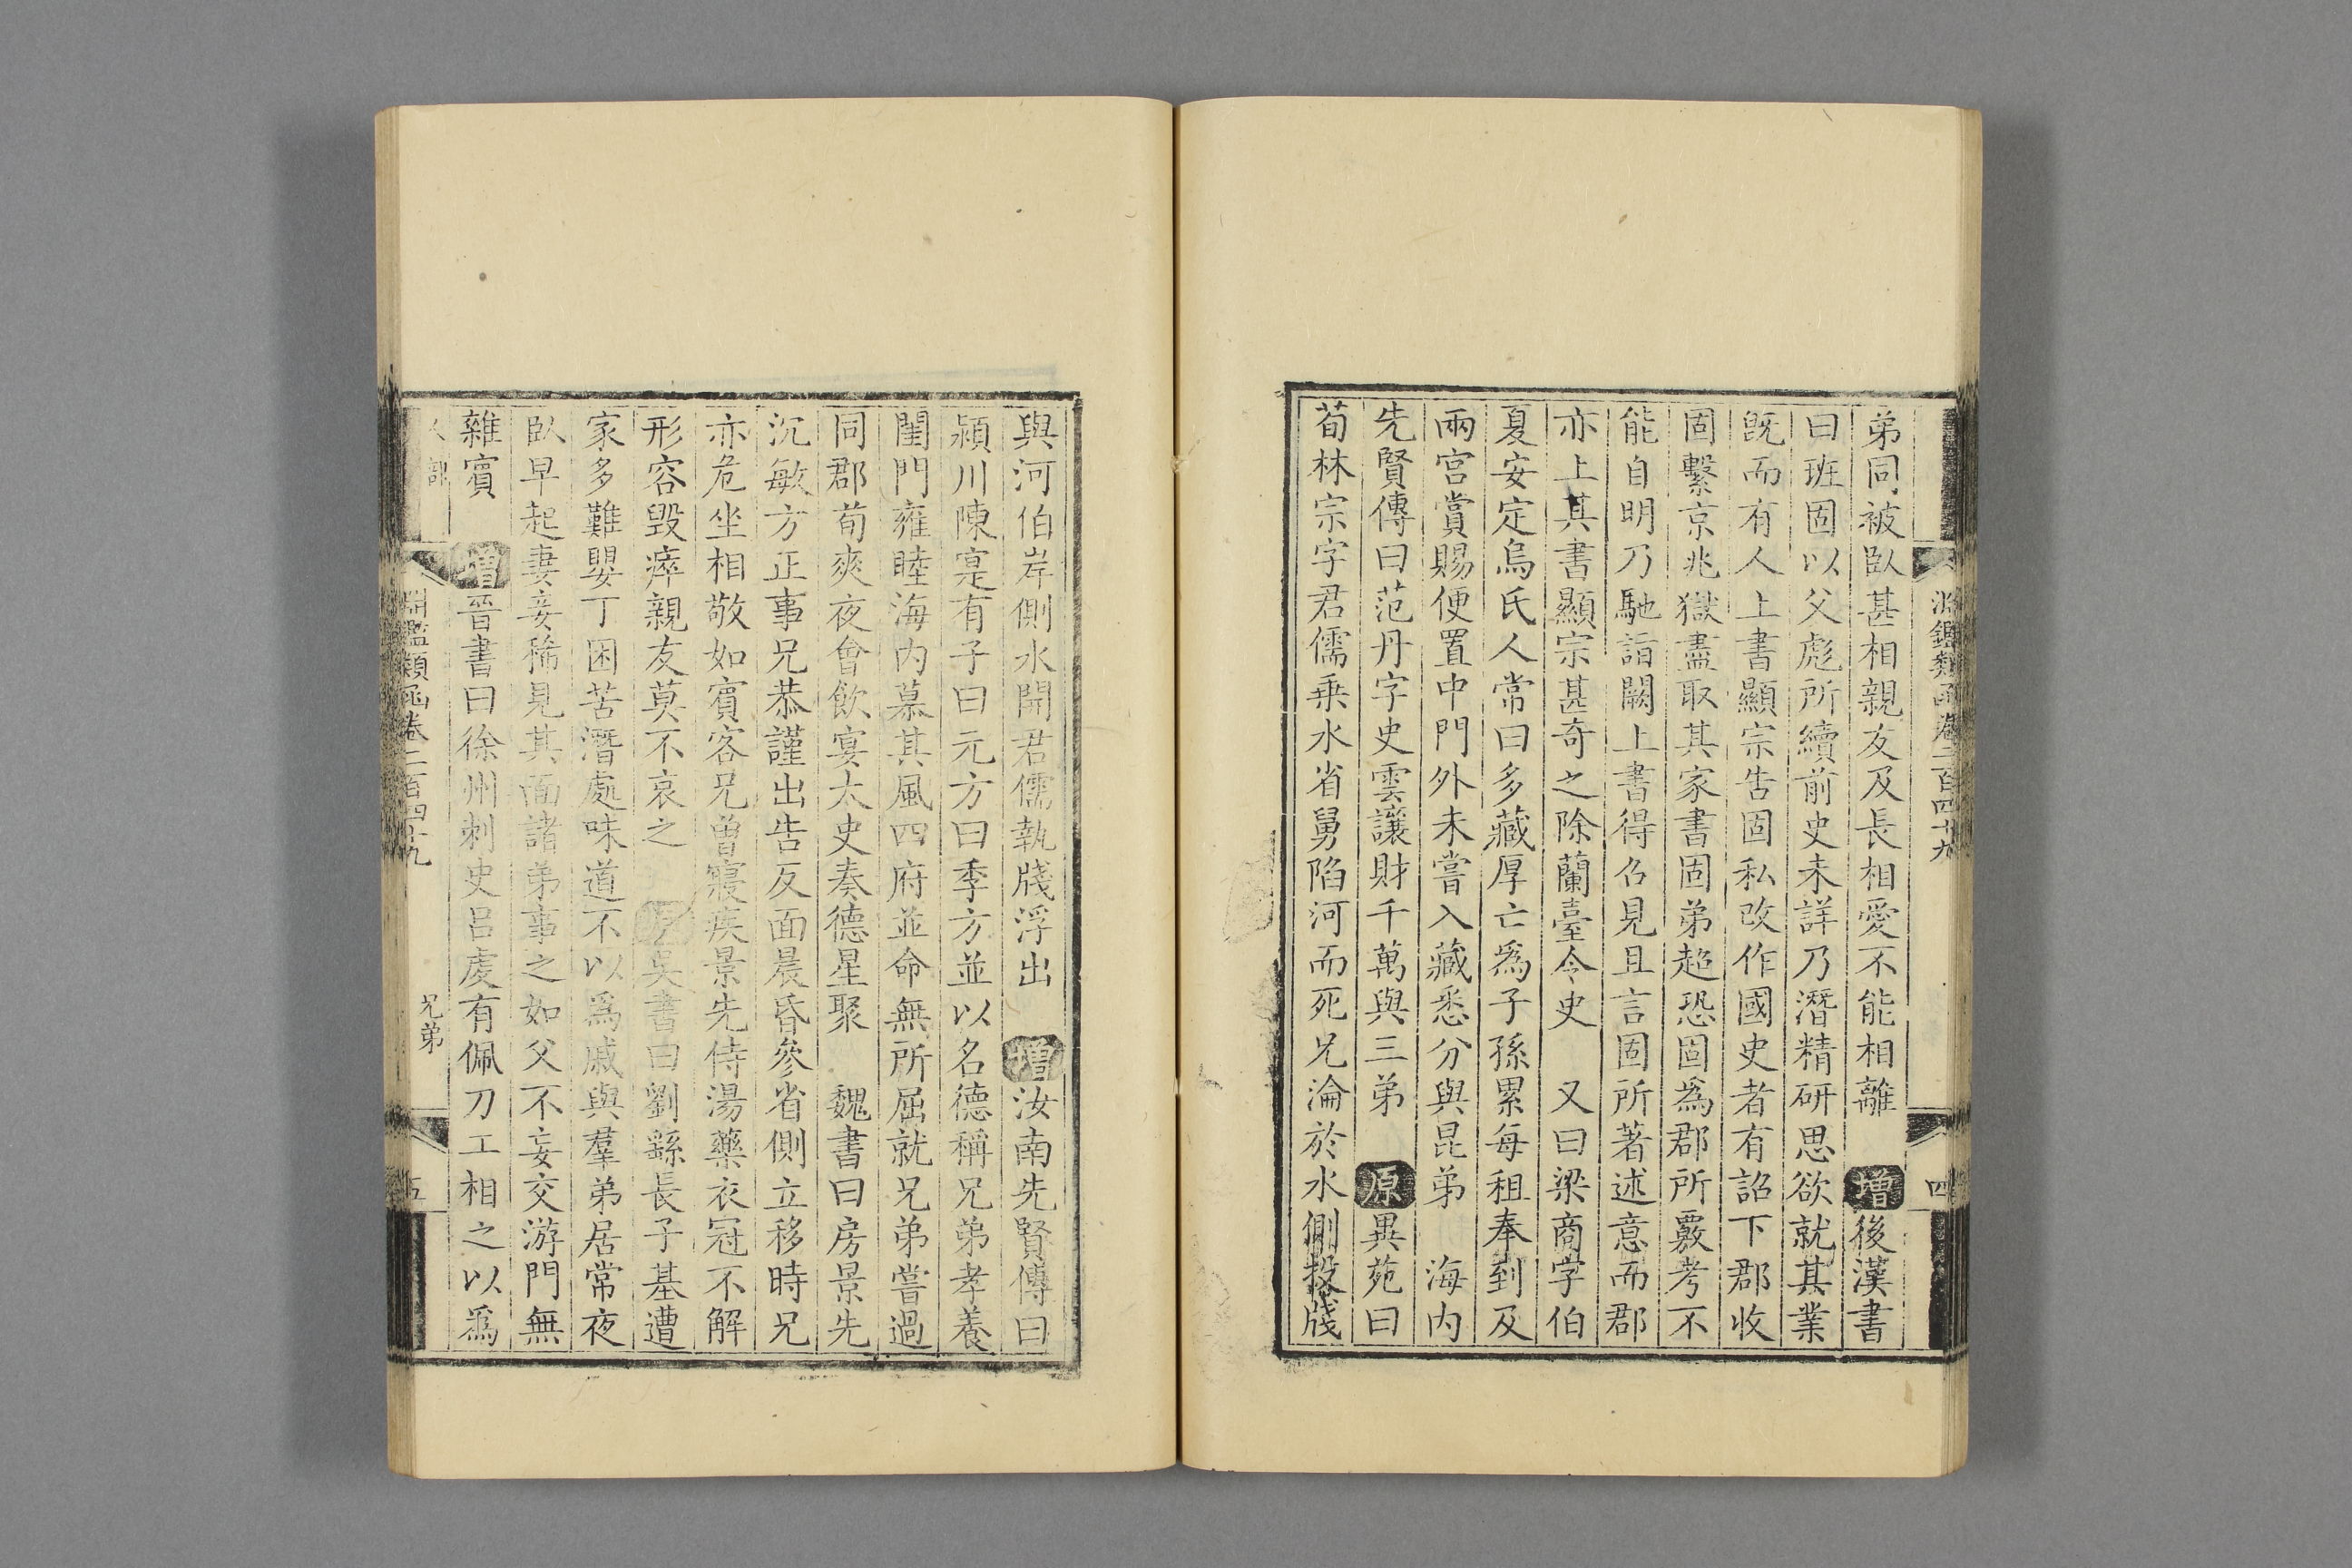 淵鑑類函卷二百四十九
四
弟同被臥甚相親友及長相愛不能相離 增後漢書
曰班固以父彪所續前史未詳乃潛精研思欲就其業
旣而有人上書顯宗吿固私改作國史者有詔下郡收
固繫京兆獄盡取其家書固弟超恐固爲郡所覈考不
能自明乃馳詣闕上書得召見且言固所著述意而郡
亦上其書顯宗甚奇之除蘭臺令史 又曰梁商字伯
夏安定烏氏人常曰多藏厚亡爲子孫累每租奉到及
兩宮賞賜便置中門外未嘗入藏悉分與昆弟 海內
先賢傳曰范丹字史雲讓財千萬與三弟 原異苑曰
荀林宗字君儒乗水省舅陷河而死兄淪於水側投牋
與河伯岸側水開君儒執牋浮出 增汝南先賢傳曰
潁川陳寔有子曰元方曰季方並以名德稱兄弟孝養
閨門雍睦海內慕其風四府並命無所屈就兄弟嘗過
同郡荀爽夜會飲宴太史奏德星聚 魏書曰房景先
沉敏方正事兄恭謹出告反面晨昏參省側立移時兄
亦危坐相敬如賓客兄曾寢疾景先侍湯藥衣冠不解
形容毀瘁親友莫不哀之 原吳書曰劉繇長子基遭
家多難嬰丁困苦潛處味道不以爲戚與羣弟居常夜
臥早起妻妾稀見其面諸弟事之如父不妄交游門無
雜賓 增晉書曰徐州刺史呂虔有佩刀工相之以爲
人部
淵鑑類函卷二百四十九
兄弟
五